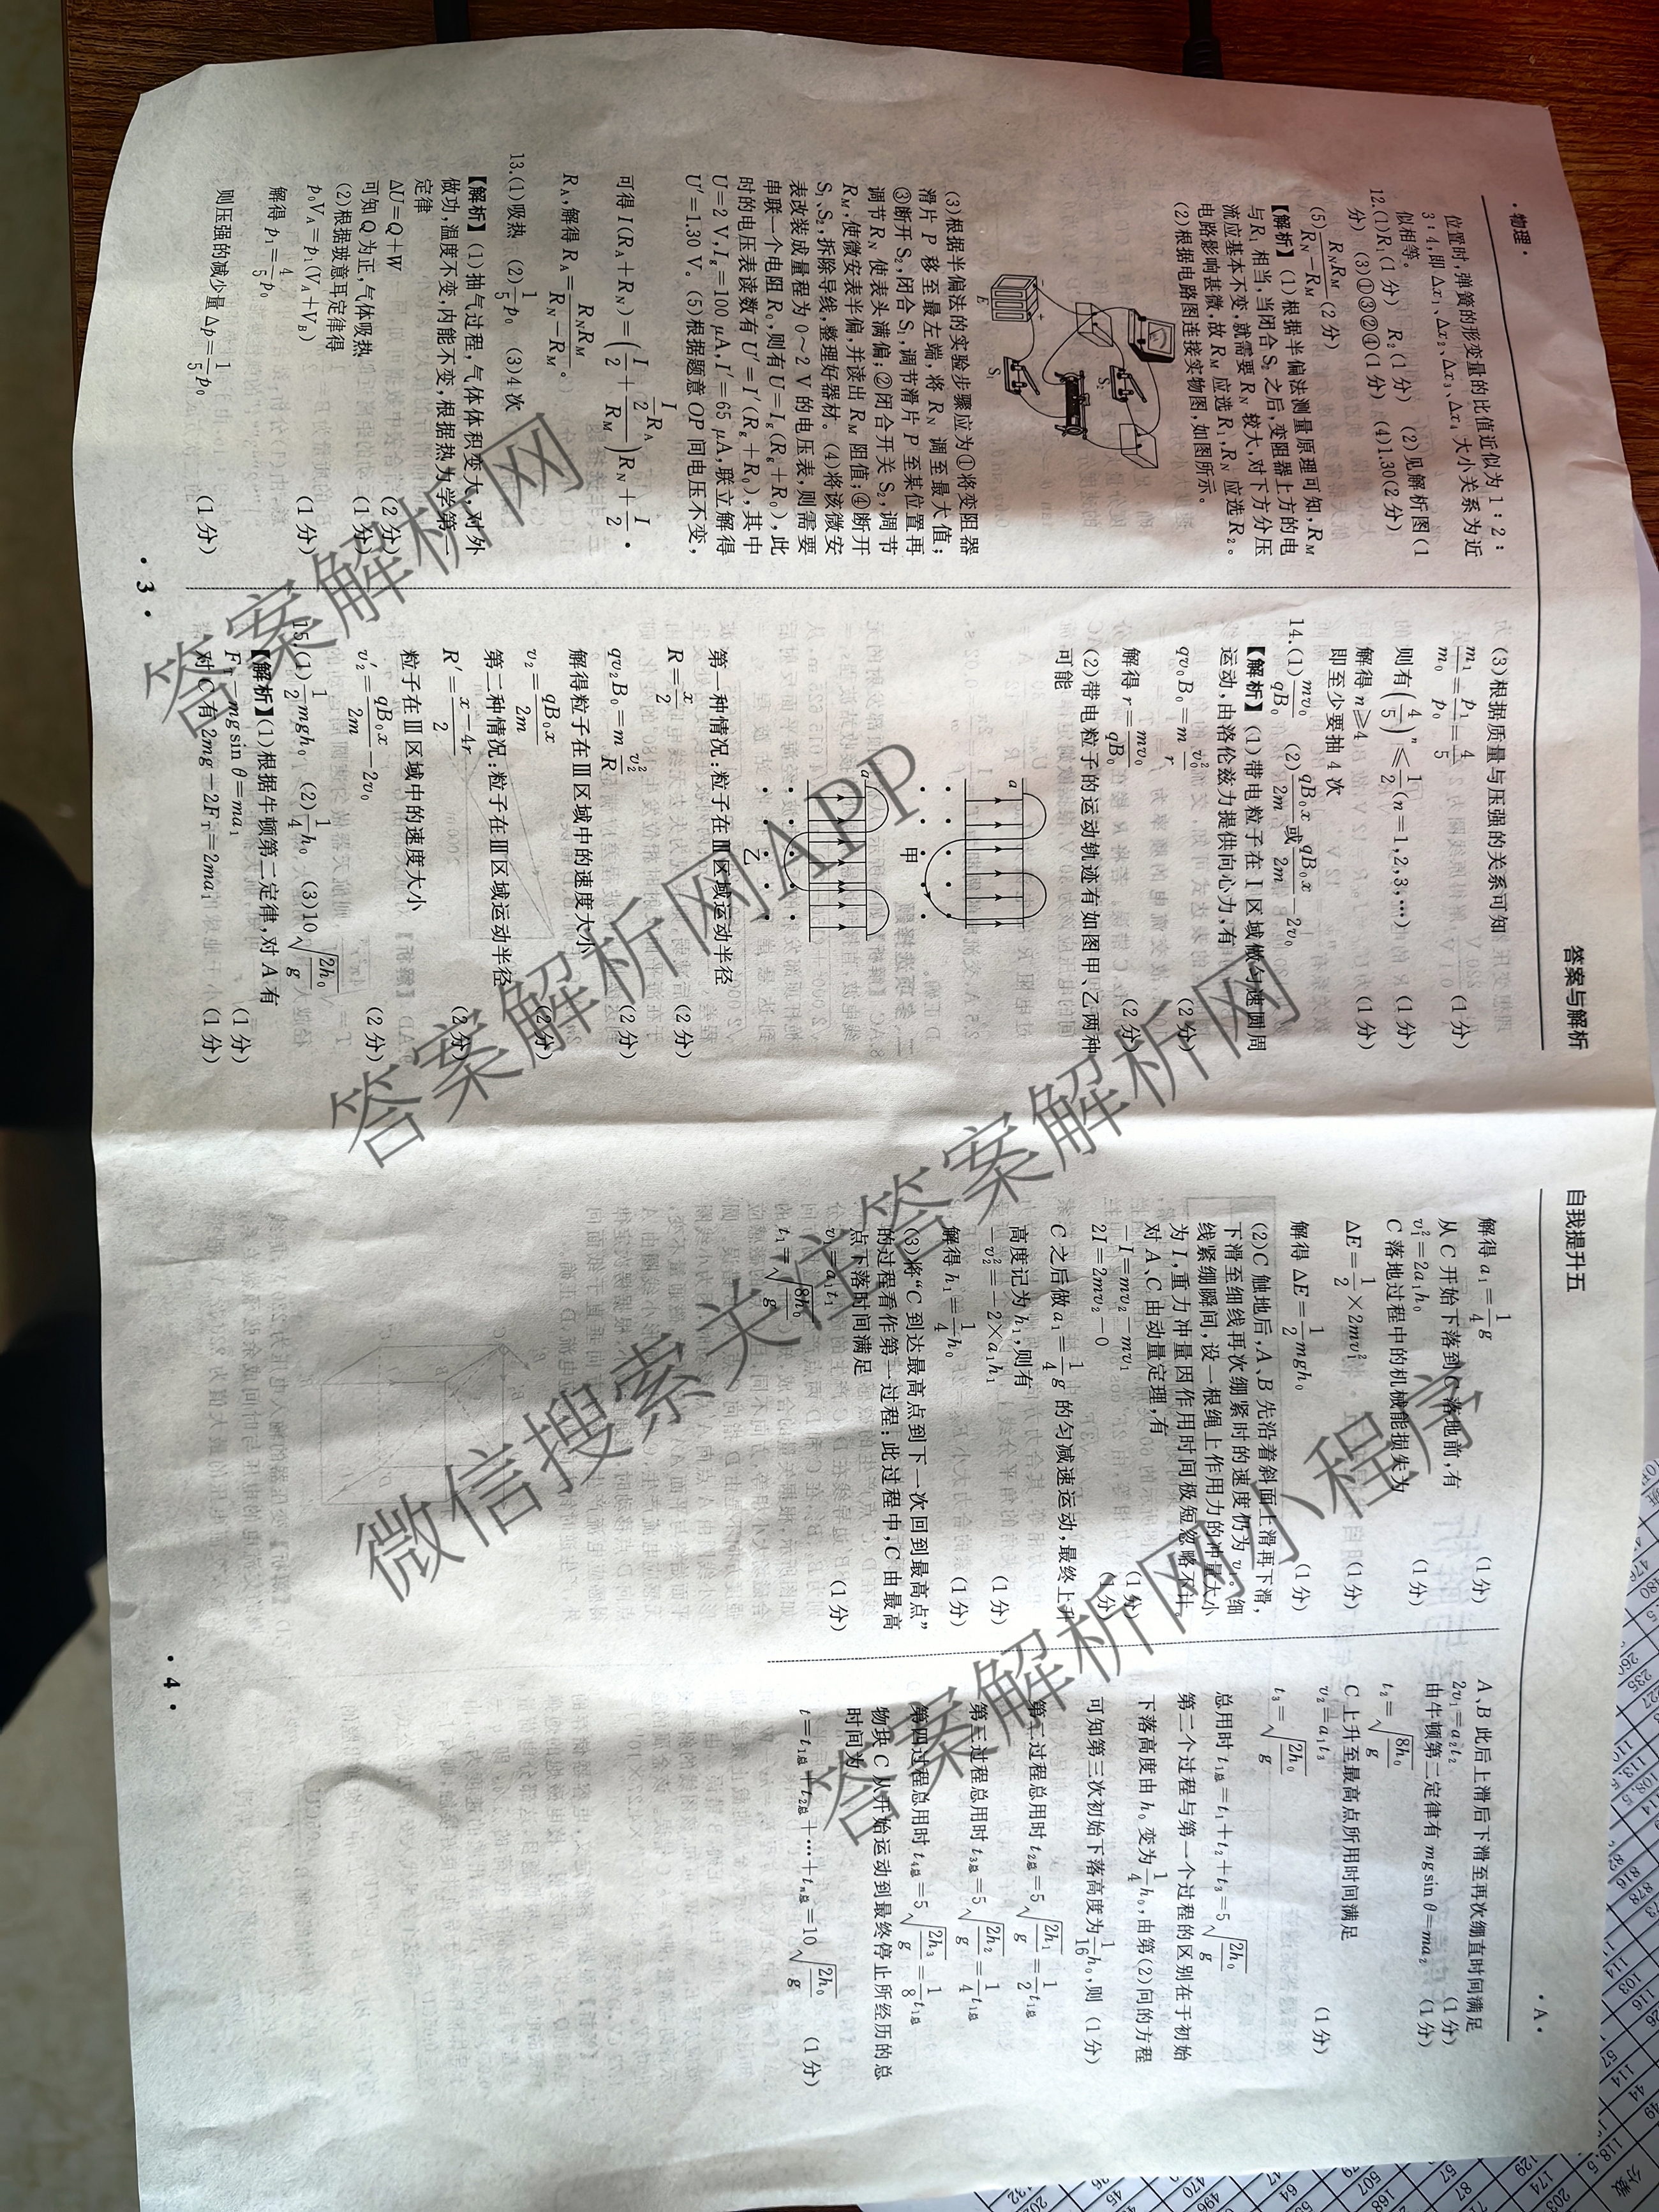 ·物理·
答案与解析
位置时,弹簧的形变量的比值近似为1:2:
3:4,即Δx₁、Δx₂、Δx₃、Δx₄大小关系为近
似相等。
12.(1)R₁(1分) R₂(1分) (2)见解析图(1
分) (3)①③②④(1分) (4)1.30(2分)
(5)R_N R_M/(R_N−R_M)(2分)
【解析】(1)根据半偏法测量原理可知,R_M
与R₁相当,当闭合S₂之后,变阻器上方的电
流应基本不变,就需要R_N较大,对下方分压
电路影响甚微,故R_M应选R₁,R_N应选R₂。
(2)根据电路图连接实物图,如图所示。
E
S₁
(3)根据半偏法的实验步骤应为①将变阻器
滑片P移至最左端,将R_N调至最大值;
③断开S₂,闭合S₁,调节滑片P至某位置再
调节R_N使表头满偏;②闭合开关S₂,调节
R_M,使微安表半偏,并读出R_M阻值;④断开
S₁、S₂,拆除导线,整理好器材。(4)将该微安
表改装成量程为0~2 V的电压表,则需要
串联一个电阻R₀,则有U=I_g(R_g+R₀),此
时的电压表读数有U′=I′(R_g+R₀),其中
U=2 V,I_g=100 μA,I′=65 μA,联立解得
U′=1.30 V。(5)根据题意OP间电压不变,
可得I(R_A+R_N)=(I/2+(I/2)R_A/R_M)R_N+I/2·
R_A,解得R_A=R_N R_M/(R_N−R_M)。
13.(1)吸热 (2)1/5 p₀ (3)4次
【解析】(1)抽气过程,气体体积变大,对外
做功,温度不变,内能不变,根据热力学第一
定律
ΔU=Q+W (2分)
可知Q为正,气体吸热 (1分)
(2)根据玻意耳定律得
p₀V_A=p₁(V_A+V_B) (1分)
解得p₁=4/5 p₀
则压强的减少量Δp=1/5 p₀ (1分)
(3)根据质量与压强的关系可知
m₁/m₀=p₁/p₀=4/5 (1分)
则有(4/5)ⁿ≤1/2(n=1,2,3,…) (1分)
解得n≥4 (1分)
即至少要抽4次
14.(1)mv₀/qB₀ (2)qB₀x/2m或qB₀x/2m−2v₀
【解析】(1)带电粒子在Ⅰ区域做匀速圆周
运动,由洛伦兹力提供向心力,有
qv₀B₀=m v₀²/r (2分)
解得r=mv₀/qB₀ (2分)
(2)带电粒子的运动轨迹有如图甲、乙两种
可能
a
甲
a
乙
第一种情况:粒子在Ⅲ区域运动半径
R=x/2 (2分)
qv₂B₀=m v₂²/R (2分)
解得粒子在Ⅲ区域中的速度大小
v₂=qB₀x/2m (2分)
第二种情况:粒子在Ⅲ区域运动半径
R′=(x−4r)/2 (2分)
粒子在Ⅲ区域中的速度大小
v₂′=qB₀x/2m−2v₀ (2分)
15.(1)1/2 mgh₀ (2)1/4 h₀ (3)10√(2h₀/g)
【解析】(1)根据牛顿第二定律,对A有
F_T−mgsin θ=ma₁ (1分)
对C有2mg−2F_T=2ma₁ (1分)
·3·
自我提升五
·A·
解得a₁=1/4 g (1分)
从C开始下落到C落地前,有
v₁²=2a₁h₀ (1分)
C落地过程中的机械能损失为
ΔE=1/2×2mv₁² (1分)
解得ΔE=1/2 mgh₀ (1分)
(2)C触地后,A、B先沿着斜面上滑再下滑,
下滑至细线再次绷紧时的速度仍为v₁。细
线紧绷瞬间,设一根绳上作用力的冲量大小
为I,重力冲量因作用时间极短忽略不计。
对A、C由动量定理,有
−I=mv₂−mv₁ (1分)
2I=2mv₂−0 (1分)
C之后做a₁=1/4 g的匀减速运动,最终上升
高度记为h₁,则有
−v₂²=−2×a₁h₁ (1分)
解得h₁=1/4 h₀ (1分)
(3)将“C到达最高点到下一次回到最高点”
的过程看作第一过程;此过程中,C由最高
点下落时间满足
v₁=a₁t₁ (1分)
t₁=√(8h₀/g)
A、B此后上滑后下滑至再次绷直时间满足
2v₁=a₂t₂ (1分)
由牛顿第二定律有mgsin θ=ma₂ (1分)
t₂=√(8h₀/g)
C上升至最高点所用时间满足
v₂=a₁t₃ (1分)
t₃=√(2h₀/g)
总用时t₁总=t₁+t₂+t₃=5√(2h₀/g)
第二个过程与第一个过程的区别在于初始
下落高度由h₀变为1/4 h₀,由第(2)问的方程
可知第三次初始下落高度为1/16 h₀,则 (1分)
第二过程总用时t₂总=5√(2h₁/g)=1/2 t₁总
第三过程总用时t₃总=5√(2h₂/g)=1/4 t₁总
第四过程总用时t₄总=5√(2h₃/g)=1/8 t₁总
物块C从开始运动到最终停止所经历的总
时间为
t=t₁总+t₂总+…+tₙ总=10√(2h₀/g) (1分)
·4·
答案解析网
答案解析网APP
微信搜索关注答案解析网
答案解析网小程序